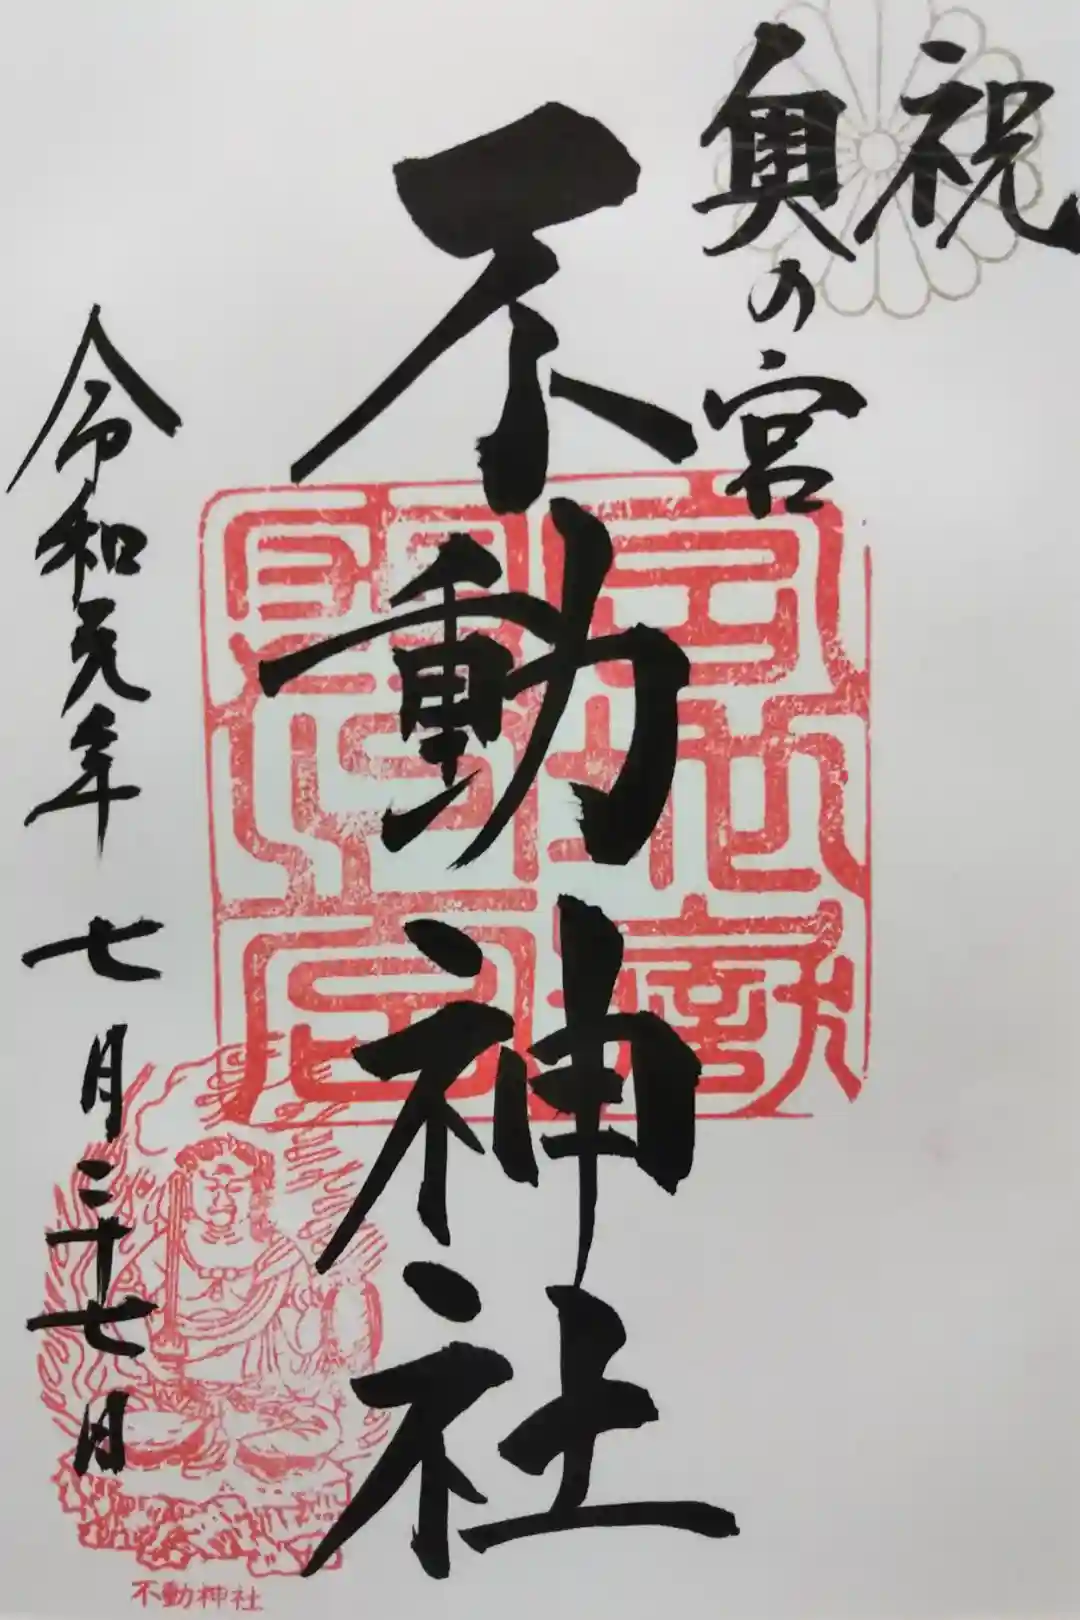 祝
奥の宮
不動神社
令和元年 七月二十七日
不動神社